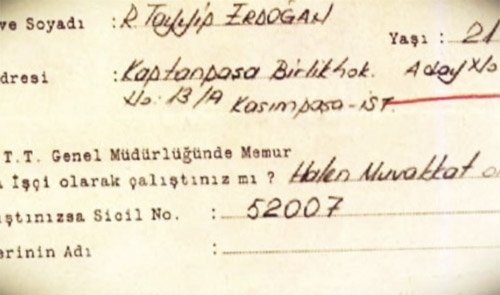 ve Soyadı : R. Tayyip ERDOĞAN
Yaşı : 21
dresi : Kaptanpaşa Birlikhok. Aday No
No: 13/A Kasımpaşa-İST.
T.T. Genel Müdürlüğünde Memur
İşçi olarak çalıştınız mı ? Halen Muvakkat
ıştınızsa Sicil No. : 52007
erinin Adı :